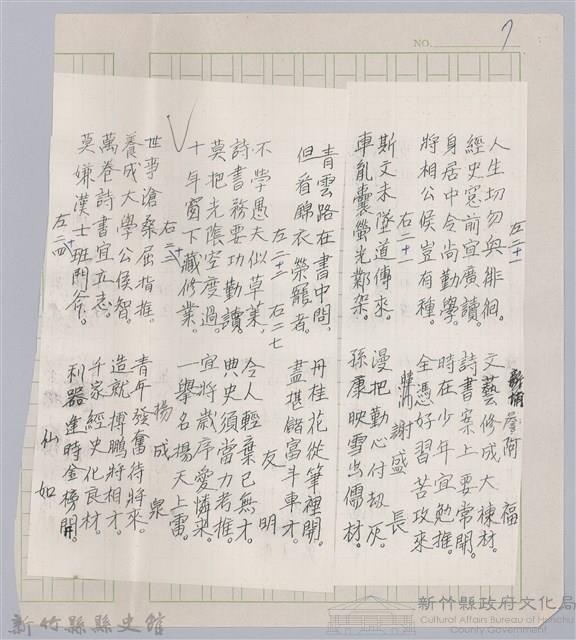 NO. 7
左二十 新埔 詹阿福
人生切勿與徘徊。文藝修成大棟材。
經史窓前宜廣讀。詩書案上要常開。
身居中令尚勤學。時在少年宜勉推。
將相公侯豈有種。全憑好習苦攻來
右二十一 謝盛長
斯文未墜道傳來。漫把勤心付劫灰。
車胤囊螢光鄴架。孫康映雪出儒材。
青雲路在書中問。丹桂花從筆裡開。
但看錦衣榮寵者。盡堪富斗車才。
左二十二 右二七 友明
不學愚夫似草萊。令人輕棄已無才。
詩書務要功勤讀。典史須當力考推。
莫把光陰空度過。宜將歲序愛憐來。
十年窗下藏修業。一舉名揚天上雷。
右二十三 楊成泉
世事滄桑屈指推。青年發奮待將來。
養成大學公侯智。造就搏鵬將相才。
萬卷詩書宜立志。千家經史化良材。
莫嫌漢士班門斧。利器逢時金榜開。
左二十四 仙如
新竹縣縣史館
新竹縣政府文化局
Cultural Affairs Bureau of Hsinchu
County Government